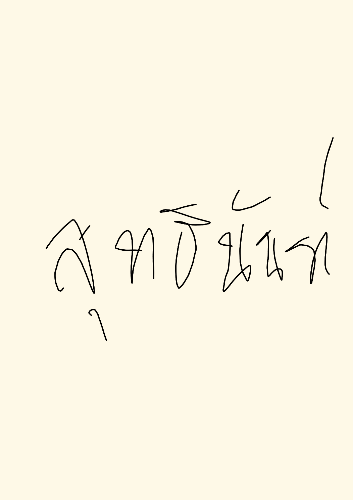 สุทธินันท์